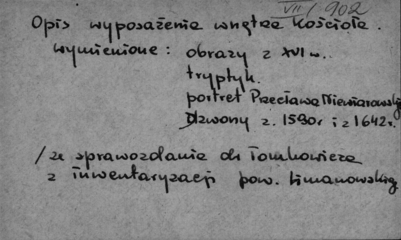 VII/902
Opis wyposażenia wnętrza Kościoła.
wymienione: obrazy z XVI w.
tryptyk.
portret Przecława Niewiarowskiego
Dzwony z. 1590r i z 1642r.
/ze sprawozdania dr Tomkowicza
z inwentaryzacji pow. Limanowskiego